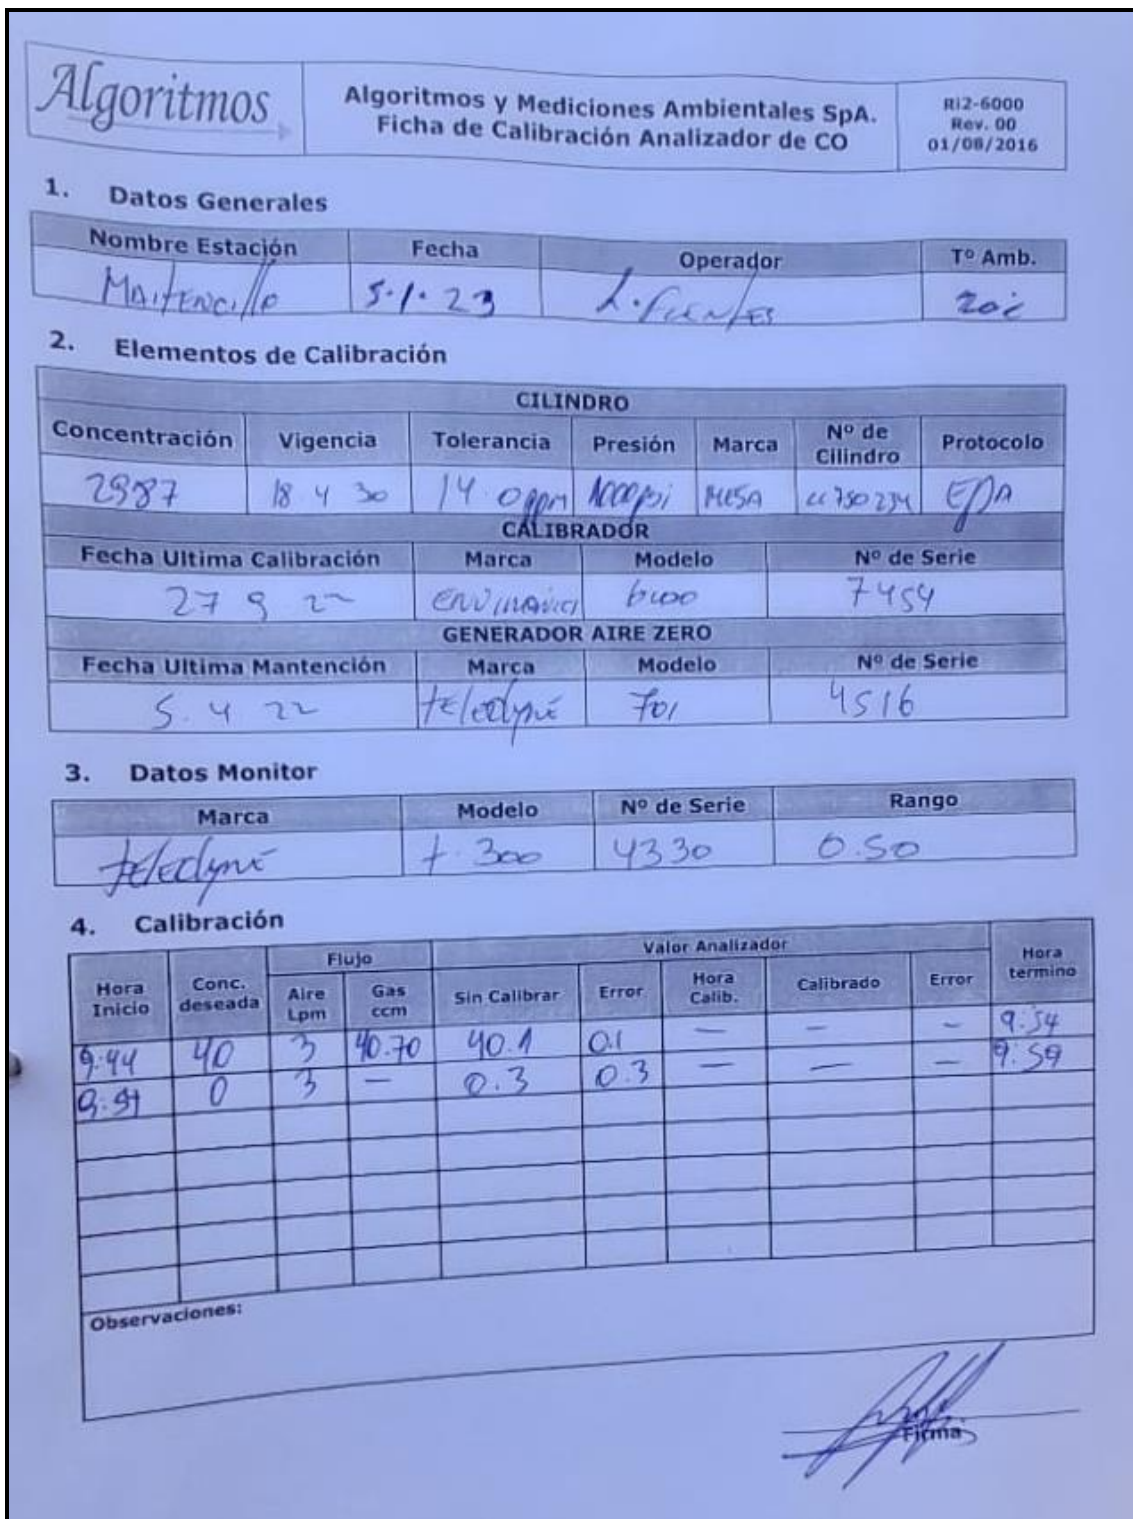 Algoritmos
Algoritmos y Mediciones Ambientales SpA.
Ficha de Calibración Analizador de CO
Ri2-6000
Rev. 00
01/08/2016
1. Datos Generales
Nombre Estación Fecha Operador Tº Amb.
Maitencillo 5.1.23 L. Fuentes 20ºc
2. Elementos de Calibración
CILINDRO
Concentración Vigencia Tolerancia Presión Marca Nº de Cilindro Protocolo
2987 18 4 30 14.0ppm 1000psi MESA CC750234 EPA
CALIBRADOR
Fecha Ultima Calibración Marca Modelo Nº de Serie
27 9 22 7454
GENERADOR AIRE ZERO
Fecha Ultima Mantención Marca Modelo Nº de Serie
5.4 22 teledyne 701 4516
3. Datos Monitor
Marca Modelo Nº de Serie Rango
teledyne t.300 4330 0.50
4. Calibración
Hora Inicio Conc. deseada Flujo Valor Analizador Hora termino
Aire Lpm Gas ccm Sin Calibrar Error Hora Calib. Calibrado Error
9:44 40 3 40.70 40.1 0.1 — — — 9:54
0 3 — 0.3 0.3 — — — 9:59
Observaciones:
Firma